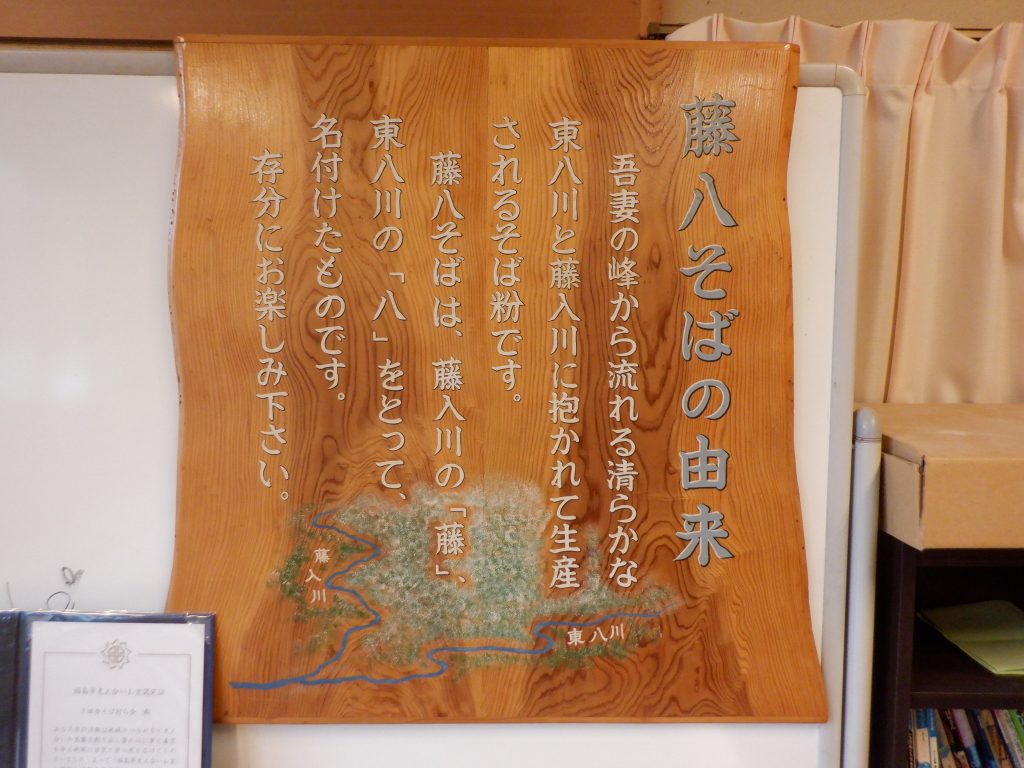 藤八そばの由来
吾妻の峰から流れる清らかな
東八川と藤入川に抱かれて生産
されるそば粉です。
藤八そばは、藤入川の「藤」、
東八川の「八」をとって、
名付けたものです。
存分にお楽しみ下さい。
藤入川
東八川